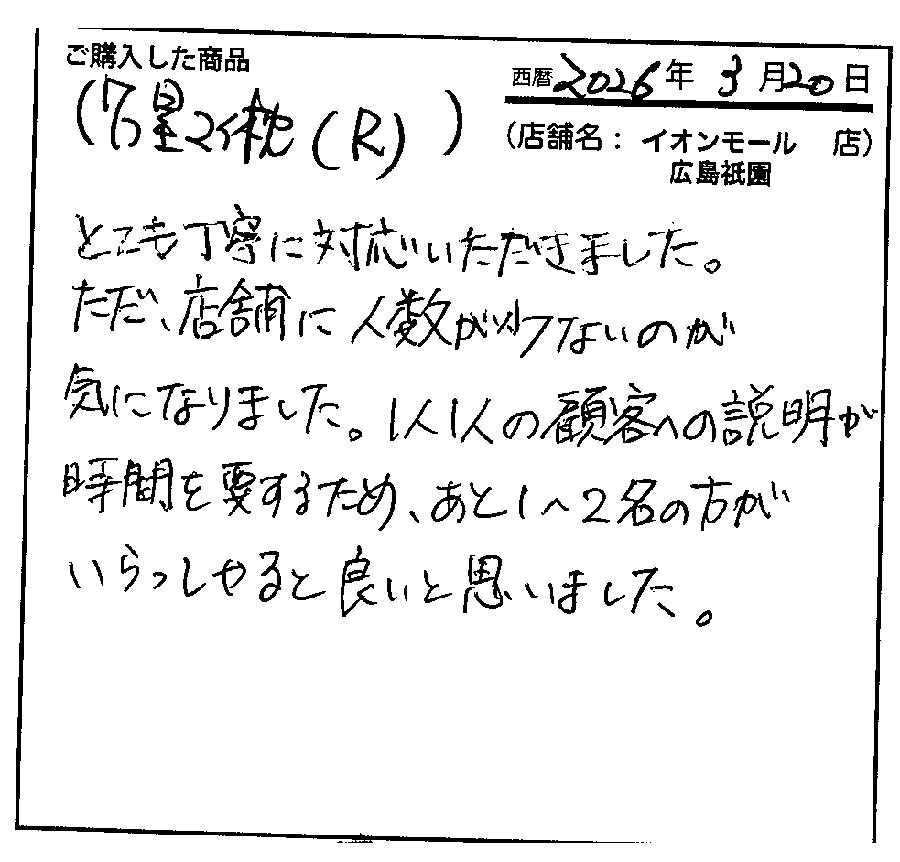 ご購入した商品
西暦2026年 3月20日
(7つ星マイ枕(R))
(店舗名: イオンモール 店)
広島祇園
とても丁寧に対応いただきました。
ただ、店舗に人数が少ないのが
気になりました。1人1人の顧客への説明が
時間を要するため、あと1〜2名の方が
いらっしゃると良いと思いました。